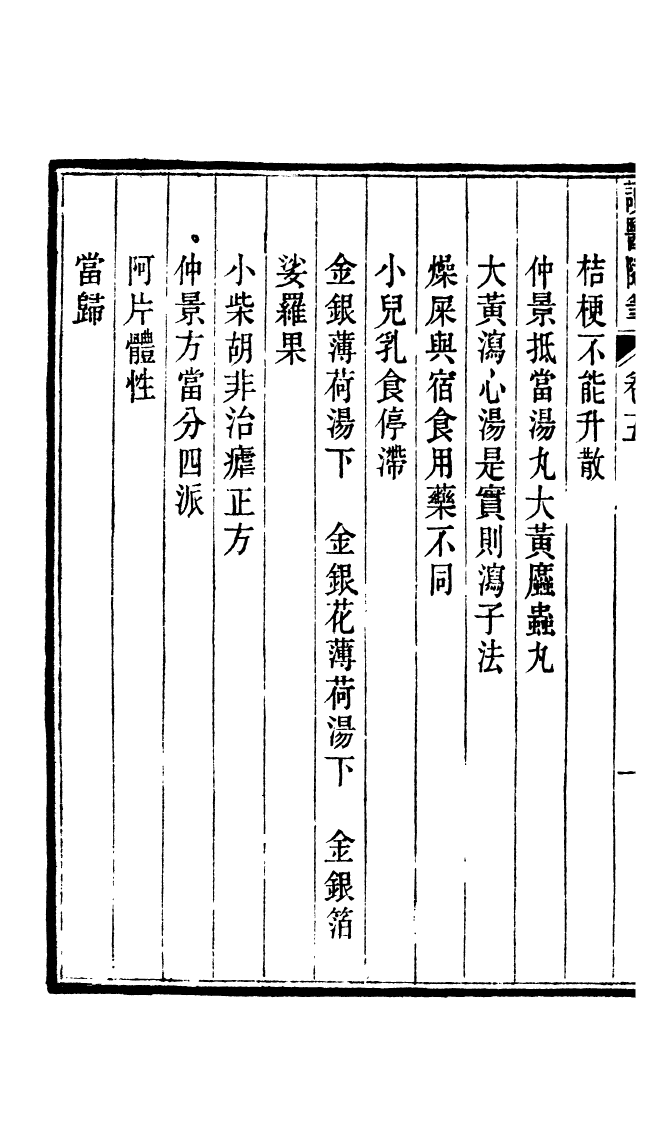 讀醫隨筆 卷五
一
桔梗不能升散
仲景抵當湯丸大黃䗪蟲丸
大黃瀉心湯是實則瀉子法
燥屎與宿食用藥不同
小兒乳食停滯
金銀薄荷湯下 金銀花薄荷湯下 金銀箔
娑羅果
小柴胡非治瘧正方
仲景方當分四派
阿片體性
當歸